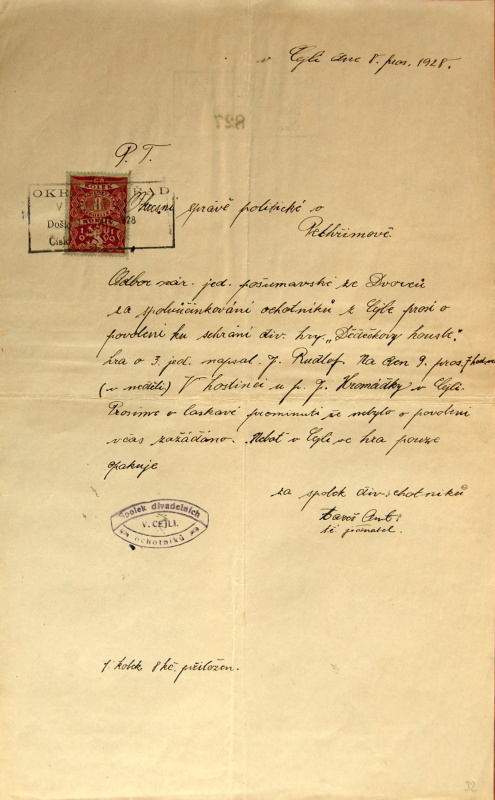 v Cejli dne 8. pros. 1928.
827
P. T.
OKR ÚŘAD
V
Došlo 1928
Číslo
KOLEK
Okresní správě politické v
Pelhřimově
Odbor nár. jed. pošumavské ze Dvorců
za spoluúčinkování ochotníků z Cejle prosí o
povolení ku sehrání div. hry „Dědečkovy housle".
hra o 3. jed. napsal J. Rudlof. Na den 9. pros. 7 hod.
(v neděli) V hostinci u p. J. Hromádky v Cejli.
Prosíme o laskavé prominutí že nebylo o povolení
včas zažádáno. Neboť v Cejli se hra pouze
opakuje
za spolek div. ochotníků
Ant.
t. č. jednatel.
Spolek divadelních
V. CEJLI.
ochotníků
1 kolek 8 kč. přiložen.
32